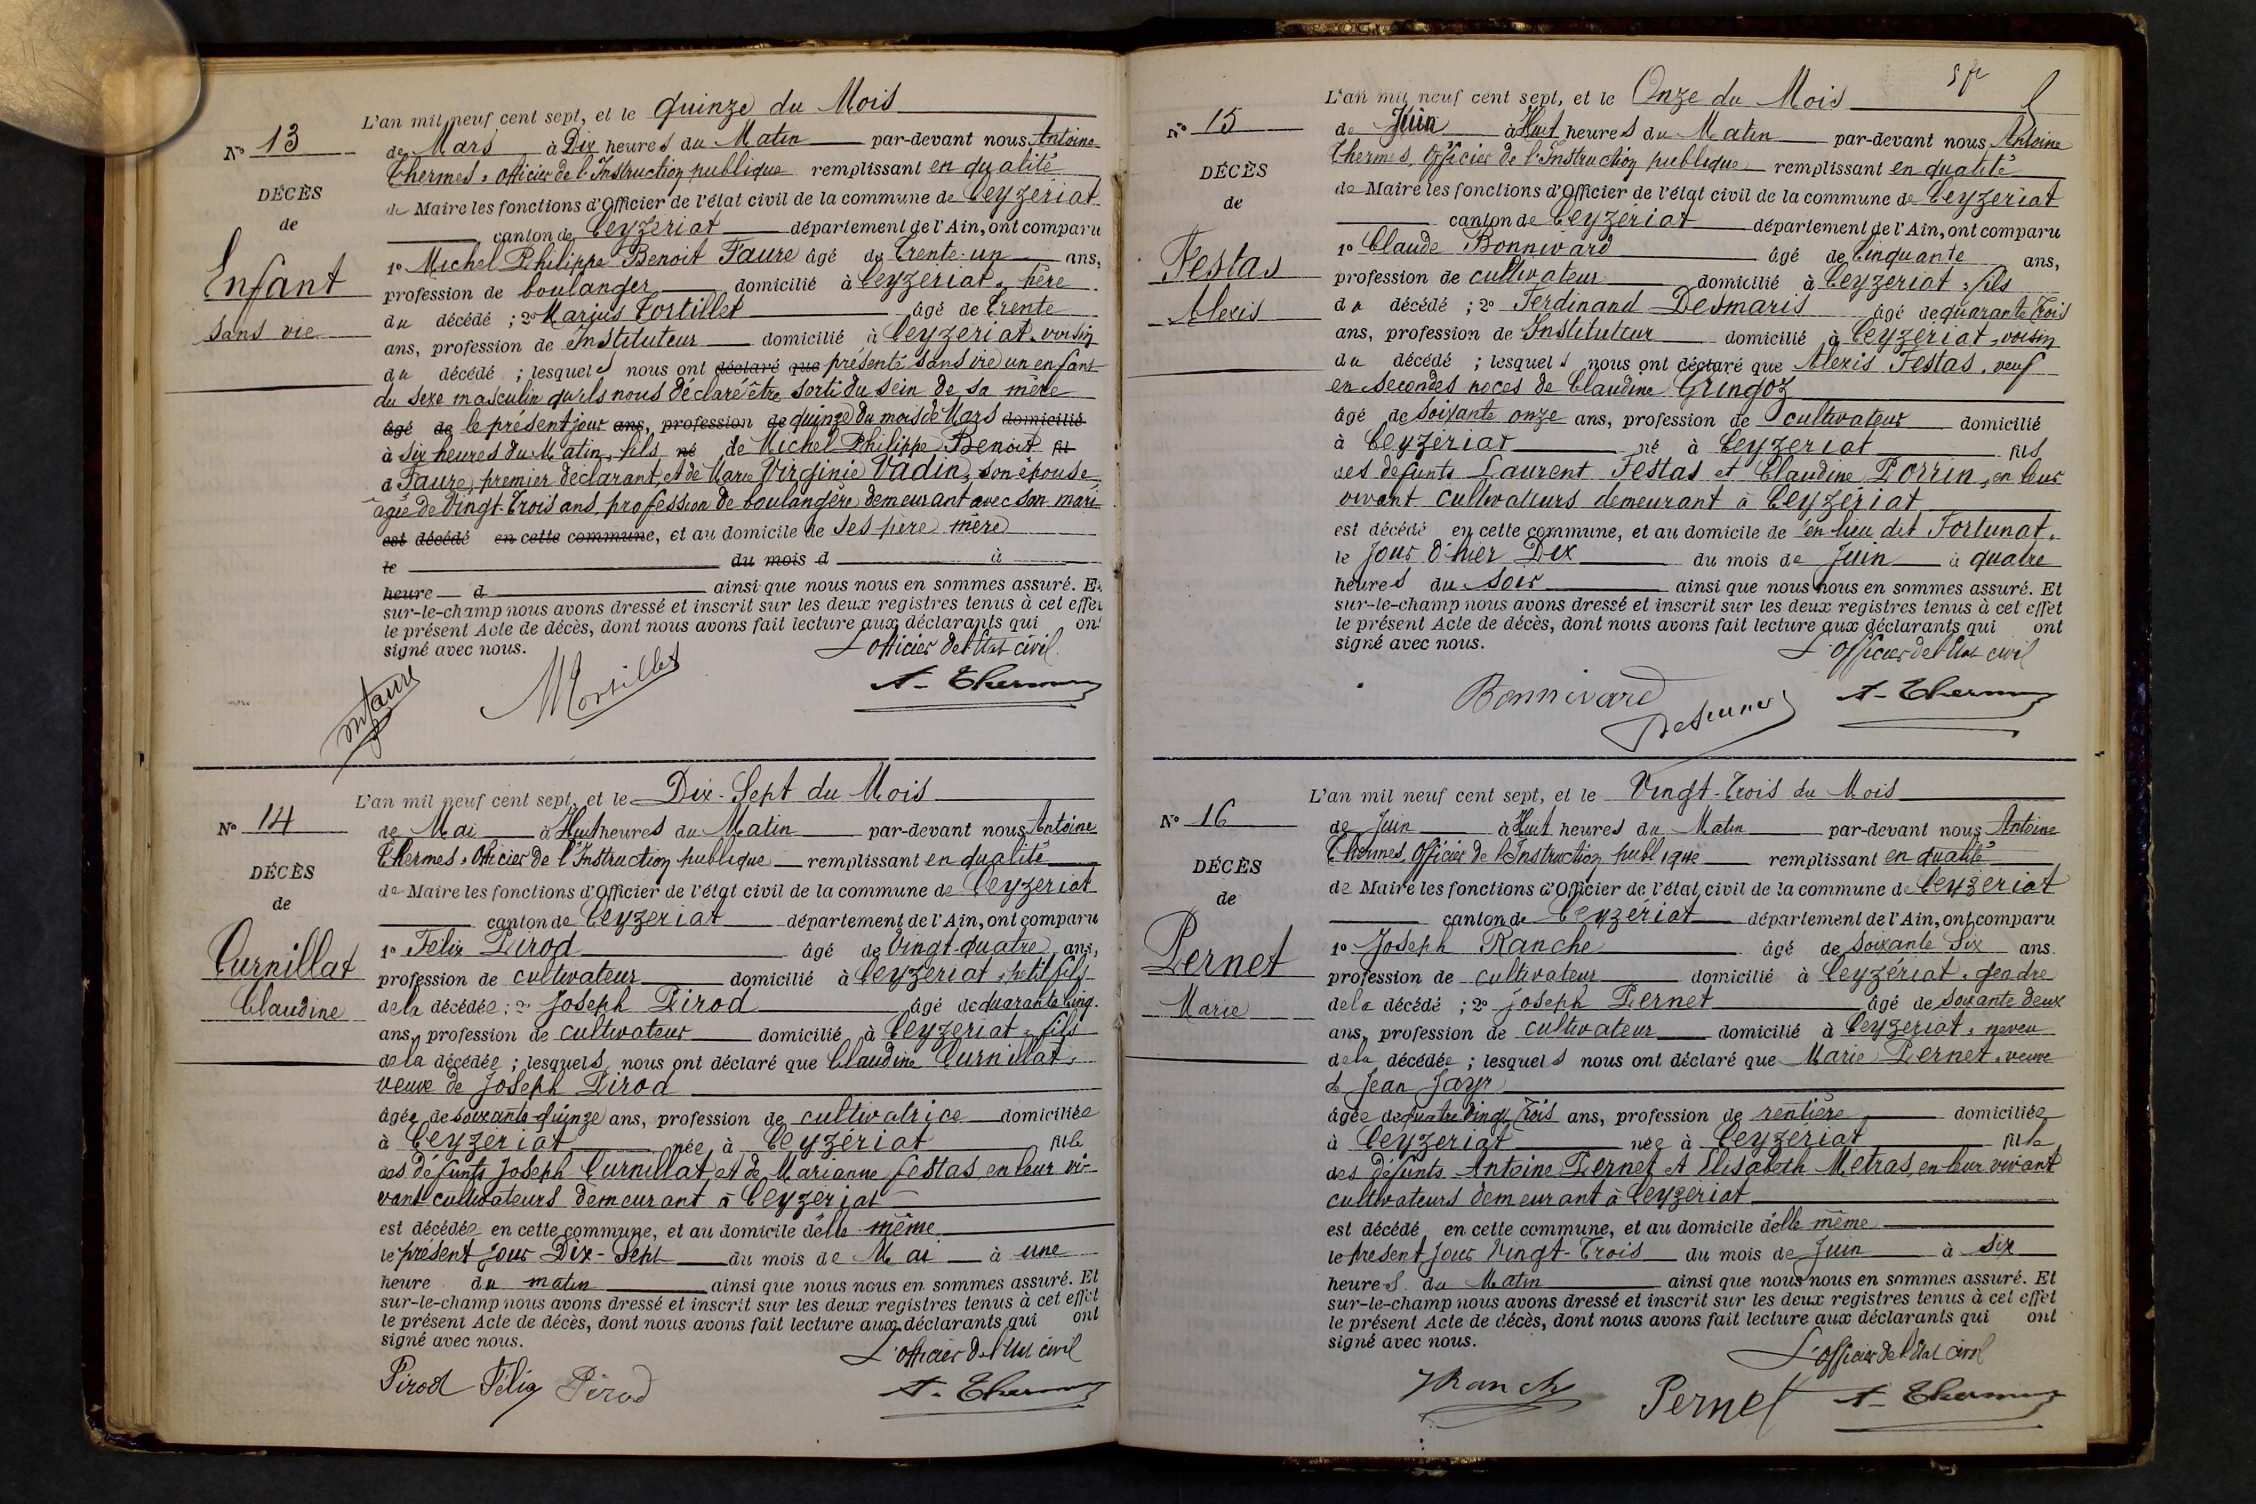 L'an mil neuf cent sept, et le quinze du Mois
N° 13
de Mars à Dix heures du Matin par-devant nous Antoine
Thermes, officier de l'Instruction publique remplissant en qualité
DÉCÈS
de Maire les fonctions d'Officier de l'état civil de la commune de Ceyzeriat
de
canton de Ceyzeriat département de l'Ain, ont comparu
1° Michel Philippe Benoit Faure âgé de trente-un ans,
Enfant
profession de boulanger domicilié à Ceyzeriat, père
du décédé ; 2° Marius Tortillet âgé de trente
sans vie
ans, profession de Instituteur domicilié à Ceyzeriat, voisin
du décédé ; lesquels nous ont déclaré que présenté sans vie un enfant
du sexe masculin qu'ils nous déclaré être sorti du sein de sa mère
âgé de le présent jour ans, profession de quinze du mois de Mars domicilié
à six heures du Matin, fils né de Michel Philippe Benoit fil
à Faure, premier déclarant, et de Marie Virginie Vadin, son épouse,
agée de Vingt-trois ans, profession de boulangère, demeurant avec son mari
est décédé en cette commune, et au domicile de ses père mère
le du mois d à
heure d ainsi que nous nous en sommes assuré. Et
sur-le-champ nous avons dressé et inscrit sur les deux registres tenus à cet effet
le présent Acte de décès, dont nous avons fait lecture aux déclarants qui ont
signé avec nous. L'officier de l'Etat civil
A. Thermes
L'an mil neuf cent sept, et le Dix-Sept du Mois
N° 14
de Mai à Huit heures du Matin par-devant nous Antoine
Thermes, Officier de l'Instruction publique remplissant en qualité
DÉCÈS
de Maire les fonctions d'Officier de l'état civil de la commune de Ceyzeriat
de
canton de Ceyzeriat département de l'Ain, ont comparu
1° Felix Pirod âgé de Vingt-quatre ans,
Curnillat
profession de cultivateur domicilié à Ceyzeriat, petit fils
Claudine
de la décédée ; 2° Joseph Pirod âgé de quarante cinq
ans, profession de cultivateur domicilié à Ceyzeriat, fils
de la décédée ; lesquels nous ont déclaré que Claudine Curnillat,
veuve de Joseph Pirod
âgée de soixante-quinze ans, profession de cultivatrice domiciliée
à Ceyzeriat née à Ceyzériat fille
des défunts Joseph Curnillat et de Marianne Festas, en leur vi-
vant cultivateurs demeurant à Ceyzeriat
est décédée en cette commune, et au domicile d'elle même
le présent jour Dix-Sept du mois de Mai à une
heure du matin ainsi que nous nous en sommes assuré. Et
sur-le-champ nous avons dressé et inscrit sur les deux registres tenus à cet effet
le présent Acte de décès, dont nous avons fait lecture aux déclarants qui ont
signé avec nous. L'officier de l'Etat civil
Pirod Félix Pirod A. Thermes
L'an mil neuf cent sept, et le Onze du Mois
N° 15
de Juin à Huit heures du Matin par-devant nous Antoine
Thermes, Officier de l'Instruction publique remplissant en qualité
DÉCÈS
de Maire les fonctions d'Officier de l'état civil de la commune de Ceyzeriat
de
canton de Ceyzériat département de l'Ain, ont comparu
1° Claude Bonnivard âgé de Cinquante ans,
Festas
profession de cultivateur domicilié à Ceyzeriat, fils
Alexis
du décédé ; 2° Ferdinand Desmaris âgé de quarante trois
ans, profession de Instituteur domicilié à Ceyzeriat, voisin
du décédé ; lesquels nous ont déclaré que Alexis Festas, veuf
en secondes noces de Claudine Gringoz
âgé de soixante onze ans, profession de cultivateur domicilié
à Ceyzériat né à Ceyzeriat fils
des defunts Laurent Festas et Claudine Porrin, en leur
vivant cultivateurs demeurant à Ceyzériat
est décédé en cette commune, et au domicile de en lieu dit Fortunat.
le Jour d'hier Dix du mois de Juin à quatre
heures du soir ainsi que nous nous en sommes assuré. Et
sur-le-champ nous avons dressé et inscrit sur les deux registres tenus à cet effet
le présent Acte de décès, dont nous avons fait lecture aux déclarants qui ont
signé avec nous. L'Officier de l'Etat civil
Bonnivard A. Thermes
L'an mil neuf cent sept, et le Vingt-Trois du Mois
N° 16
de Juin à Huit heures du Matin par-devant nous Antoine
Thermes, Officier de l'Instruction publique remplissant en qualité
DÉCÈS
de Maire les fonctions d'Officier de l'état civil de la commune de Ceyzeriat
de
canton de Ceyzériat département de l'Ain, ont comparu
1° Joseph Ranche âgé de soixante Six ans
Pernet
profession de cultivateur domicilié à Ceyzériat, gendre
Marie
de la décédé ; 2° Joseph Pernet âgé de soixante deux
ans, profession de cultivateur domicilié à Ceyzeriat, neveu
de la décédée ; lesquels nous ont déclaré que Marie Pernet, veuve
d Jean Jayr
âgée de quatre Vingt trois ans, profession de rentière domiciliée
à Ceyzeriat née à Ceyzériat fille
des défunts Antoine Pernet et Elisabeth Metras, en leur vivant
cultivateurs demeurant à Ceyzeriat
est décédé en cette commune, et au domicile d'elle même
le présent jour Vingt-Trois du mois de Juin à six
heures du Matin ainsi que nous nous en sommes assuré. Et
sur-le-champ nous avons dressé et inscrit sur les deux registres tenus à cet effet
le présent Acte de décès, dont nous avons fait lecture aux déclarants qui ont
signé avec nous. L'Officier de l'Etat civil
JRanche Pernet A. Thermes